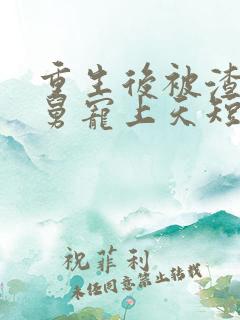 重生後被渣
舅寵上天短
祝菲利
未任同意禁止轉載